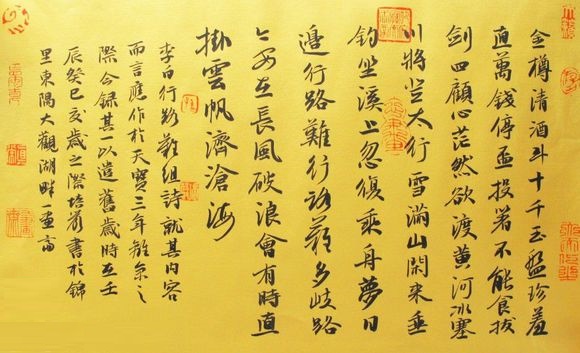 金樽清酒斗十千玉盤珍羞
直萬錢停盃投箸不能食拔
劍四顧心茫然欲渡黃河冰塞
川將登太行雪滿山閑來垂
釣坐溪上忽復乘舟夢日
邊行路難行路難多岐路
今安在長風破浪會有時直
掛雲帆濟滄海
李白行路難組詩就其內容
而言應作於天寶三年離京之
際今錄其一以遣舊歲時在壬
辰癸巳交歲之際書於錦
里東隅大觀湖畔一畫齋